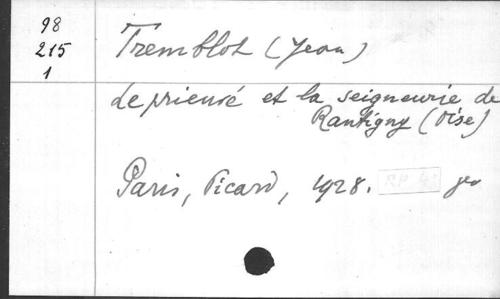 98
215
1
Tremblot (Jean)
Le prieuré et la seigneurie de
Rantigny (Oise)
Paris, Picard, 1928.